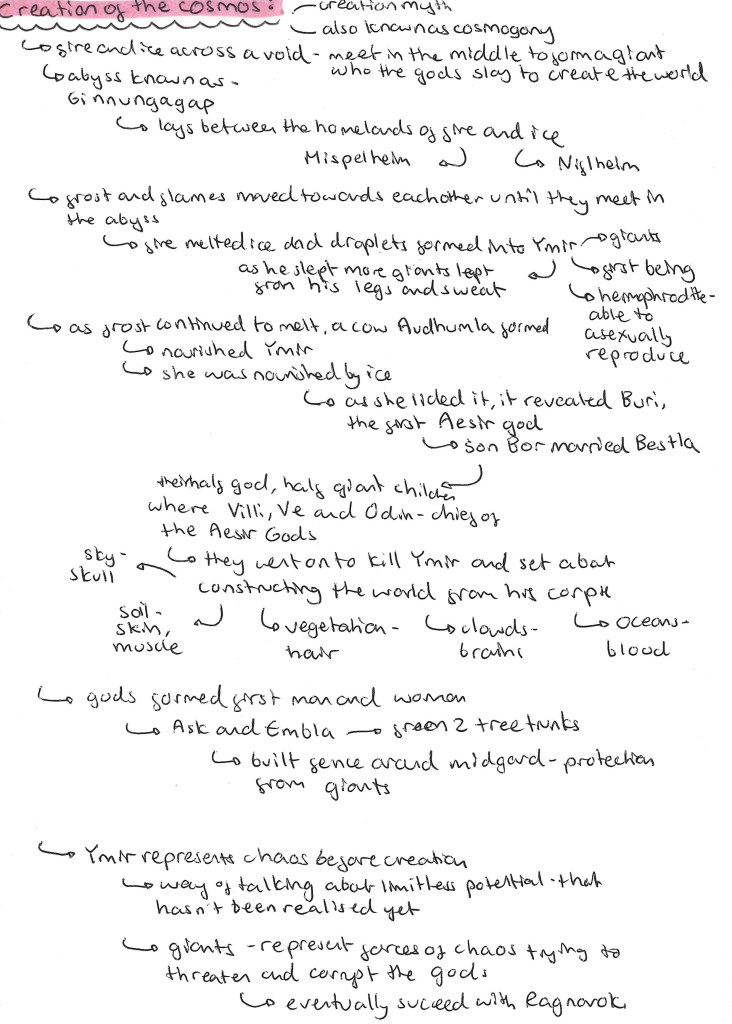 Creation of the cosmos: – creation myth
– also known as cosmogony
↳ fire and ice across a void - meet in the middle to form a giant
who the gods slay to create the world
↳ abyss known as -
Ginnungagap
↳ lays between the homelands of fire and ice
Mispelheim ↲ ↳ Niflheim
↳ frost and flames moved towards eachother until they meet in
the abyss
↳ fire melted ice and droplets formed into Ymir → giants
as he slept more giants lept
from his legs and sweat
↳ first being
↳ hemaphrodite -
able to
asexually
reproduce
↳ as frost continued to melt, a cow Audhumla formed
↳ nourished Ymir
↳ she was nourished by ice
↳ as she licked it, it revealed Buri,
the first Aesir god
↳ son Bor married Bestla
their half god, half giant children
where Villi, Ve and Odin - chief of
the Aesir Gods
↳ they went on to kill Ymir and set about
constructing the world from his corpse
sky -
skull
soil -
skin,
muscle
↳ vegetation -
hair
↳ clouds -
brains
↳ oceans -
blood
↳ gods formed first man and women
↳ Ask and Embla → from 2 tree trunks
↳ built fence around midgard - protection
from giants
↳ Ymir represents chaos before creation
↳ way of talking about limitless potential - that
hasn't been realised yet
↳ giants - represent forces of chaos trying to
threaten and corrupt the gods
↳ eventually suceed with Ragnarok